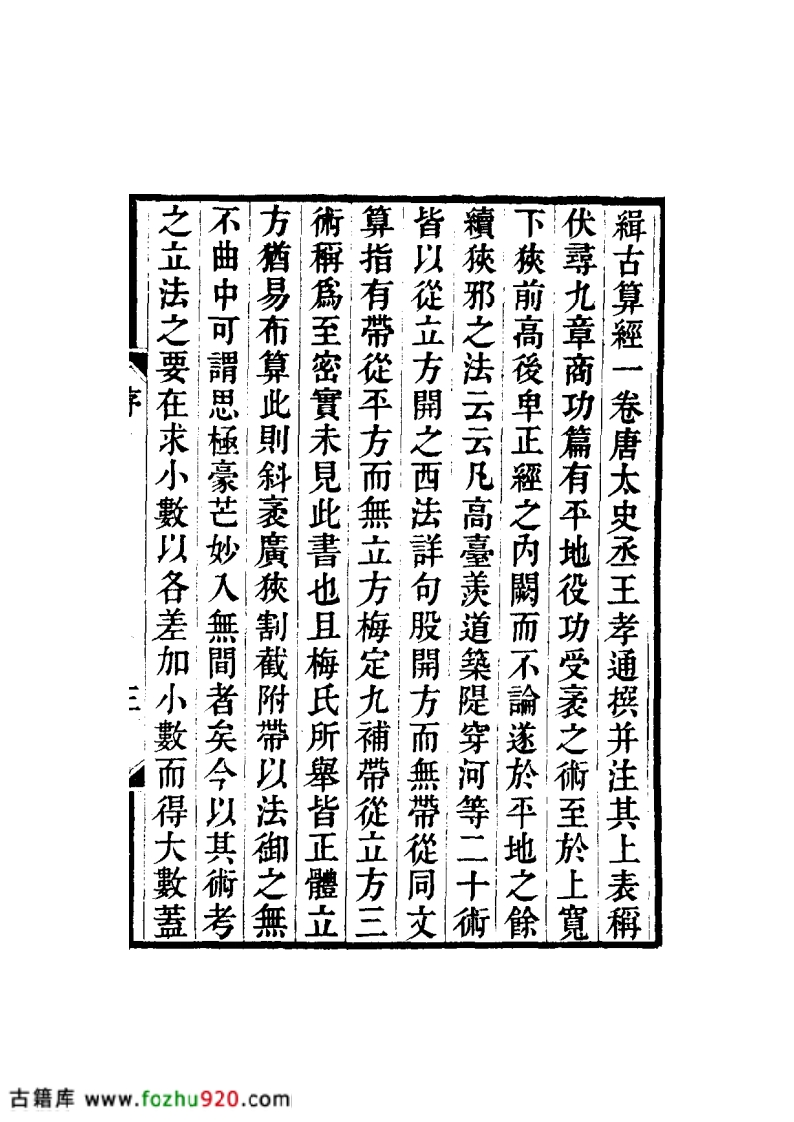 緝古算經一卷唐太史丞王孝通撰并注其上表稱
伏尋九章商功篇有平地役功受袤之術至於上寬
下狹前高後卑正經之內闕而不論遂於平地之餘
續狹邪之法云云凡高臺羨道築隄穿河等二十術
皆以從立方開之西法詳句股開方而無帶從同文
算指有帶從平方而無立方梅定九補帶從立方三
術稱爲至密實未見此書也且梅氏所舉皆正體立
方猶易布算此則斜袤廣狹割截附帶以法御之無
不曲中可謂思極豪芒妙入無間者矣今以其術考
之立法之要在求小數以各差加小數而得大數蓋
序
三
古籍库 www.fozhu920.com